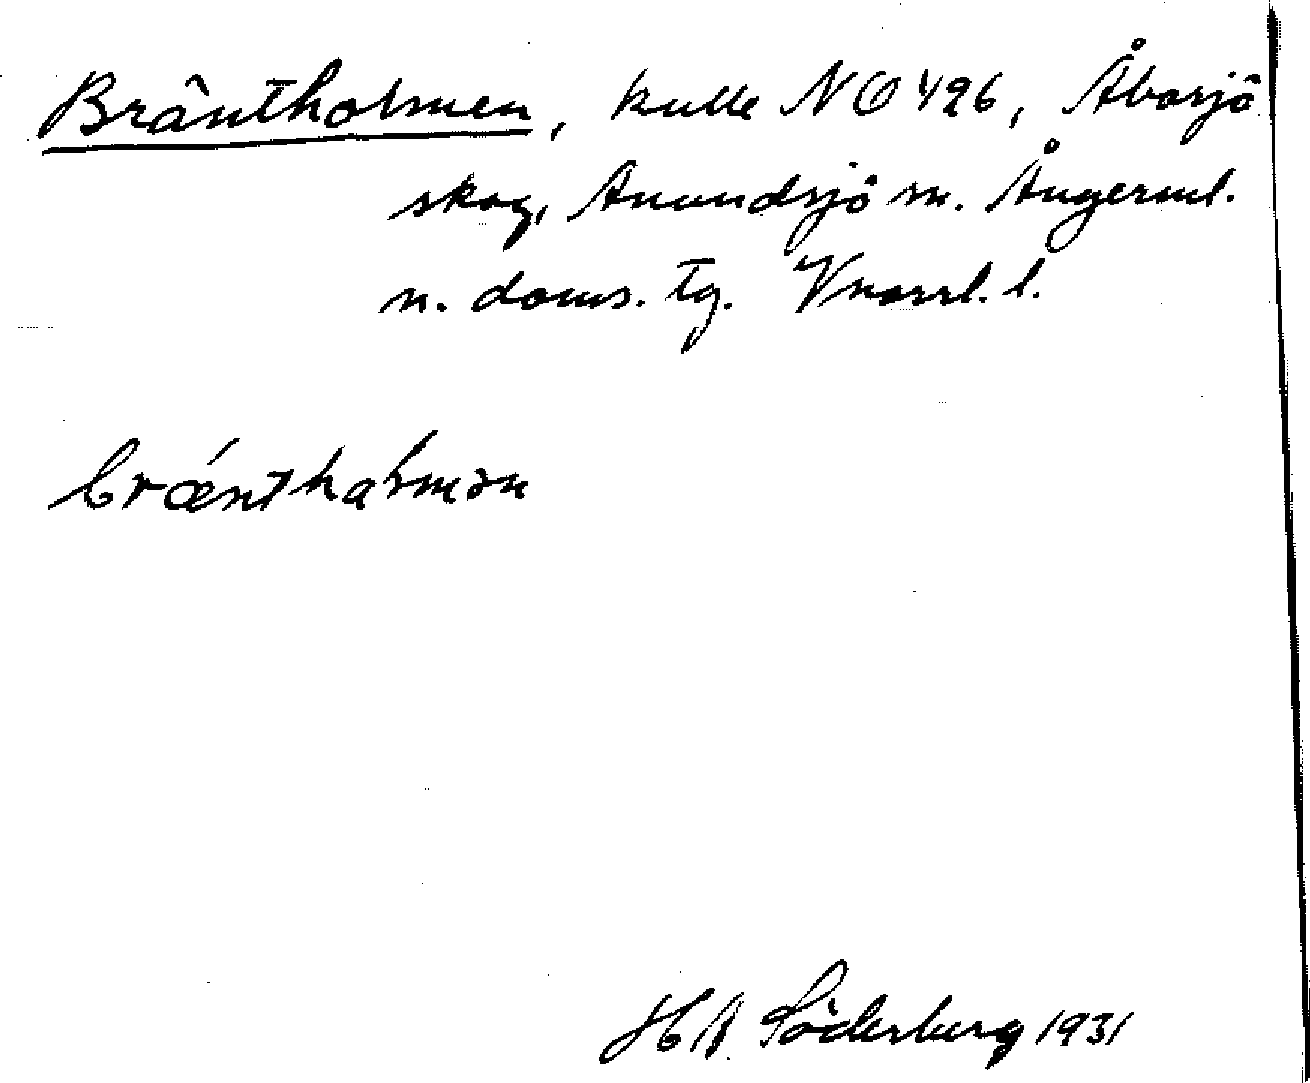 Bräntholmen, kulle NO 426, Åbosjö
skog, Anundsjö sn. Ångerml.
n. doms. tg. Vnorrl. l.
bræ´nthaɫmən
H A. Söderberg 1931